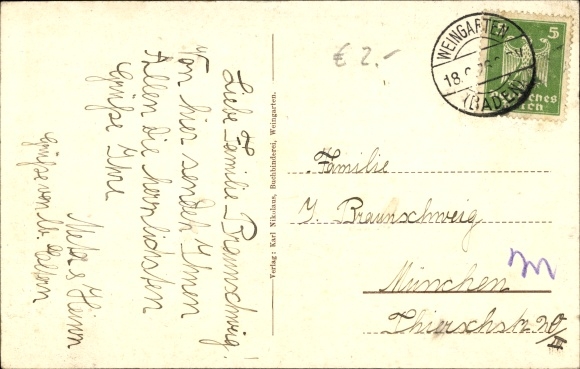 Liebe Familie Braunschweig!
Von hier sendet Ihnen
Allen die herzlichsten
Grüße Ihre
Heinen
Grüße von lb. Eltern
Verlag: Karl Nikolaus, Buchbinderei, Weingarten.
€ 2.-
WEINGARTEN
18.
(BADEN)
5
Familie
J. Braunschweig
München
Thierschstr. 20/III